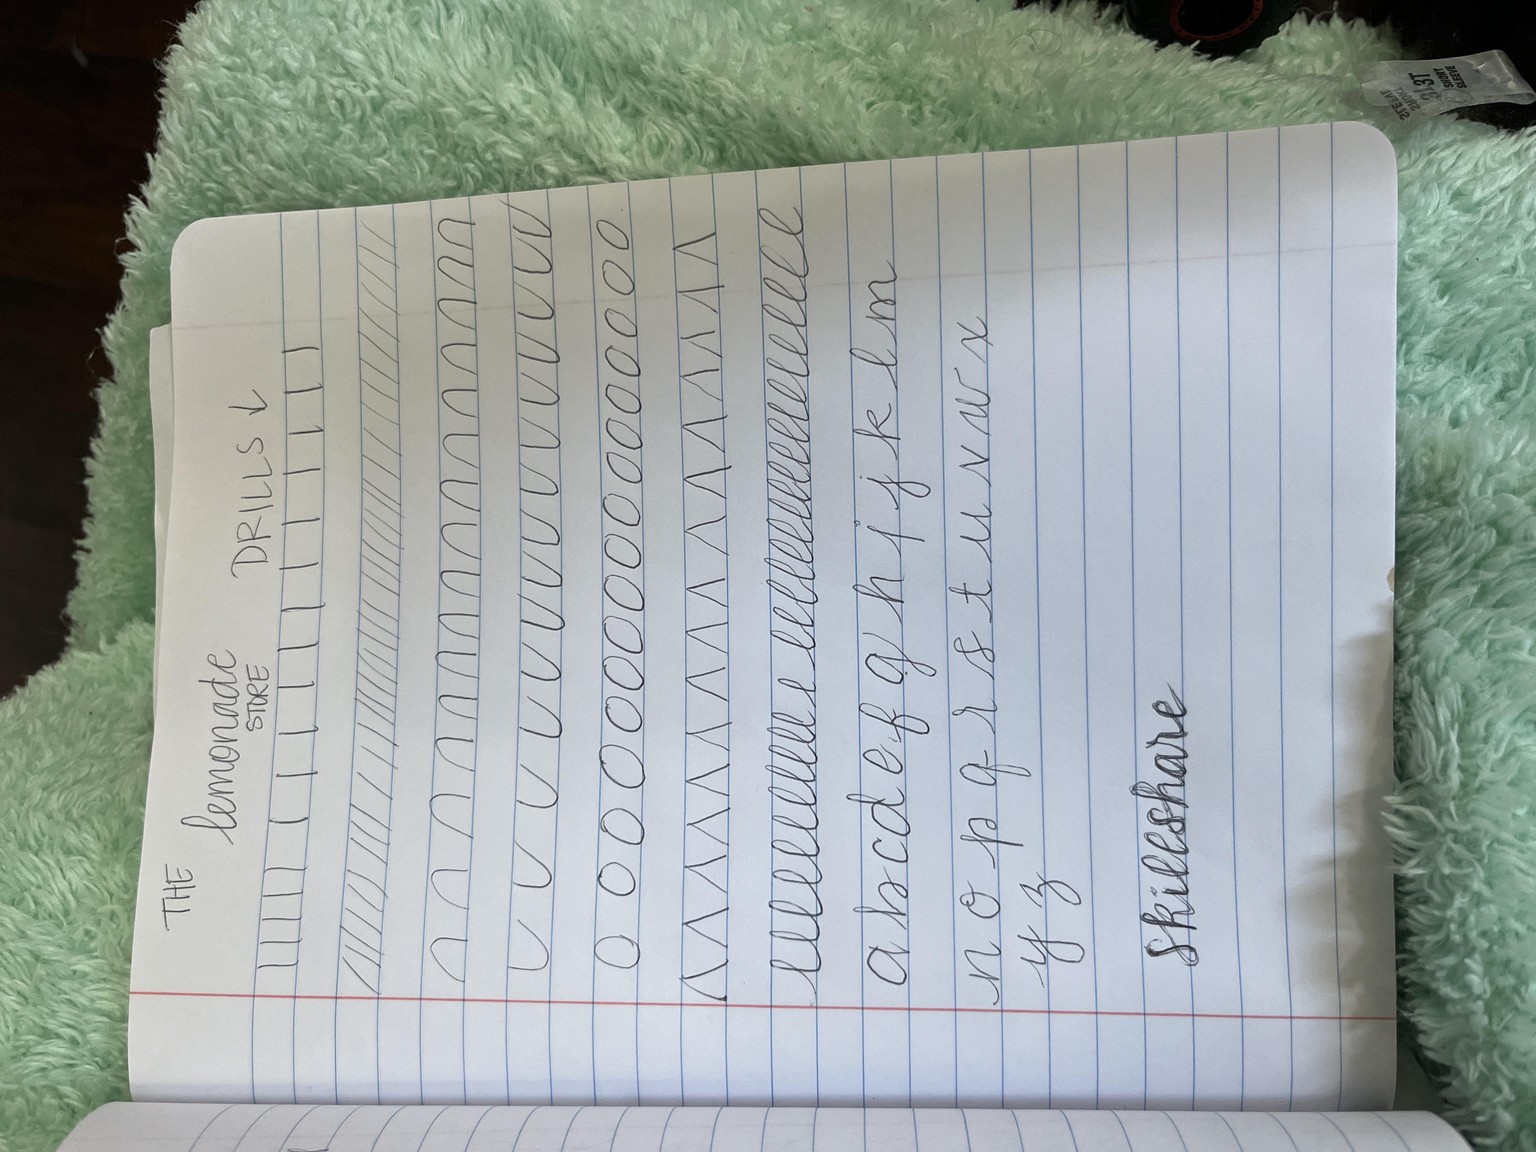 THE
lemonade
STORE
DRILLS ↓
a b c d e f g h i j k l m
n o p q r s t u v w x
y z
skillshare
SHORT
SLEEVE
3T